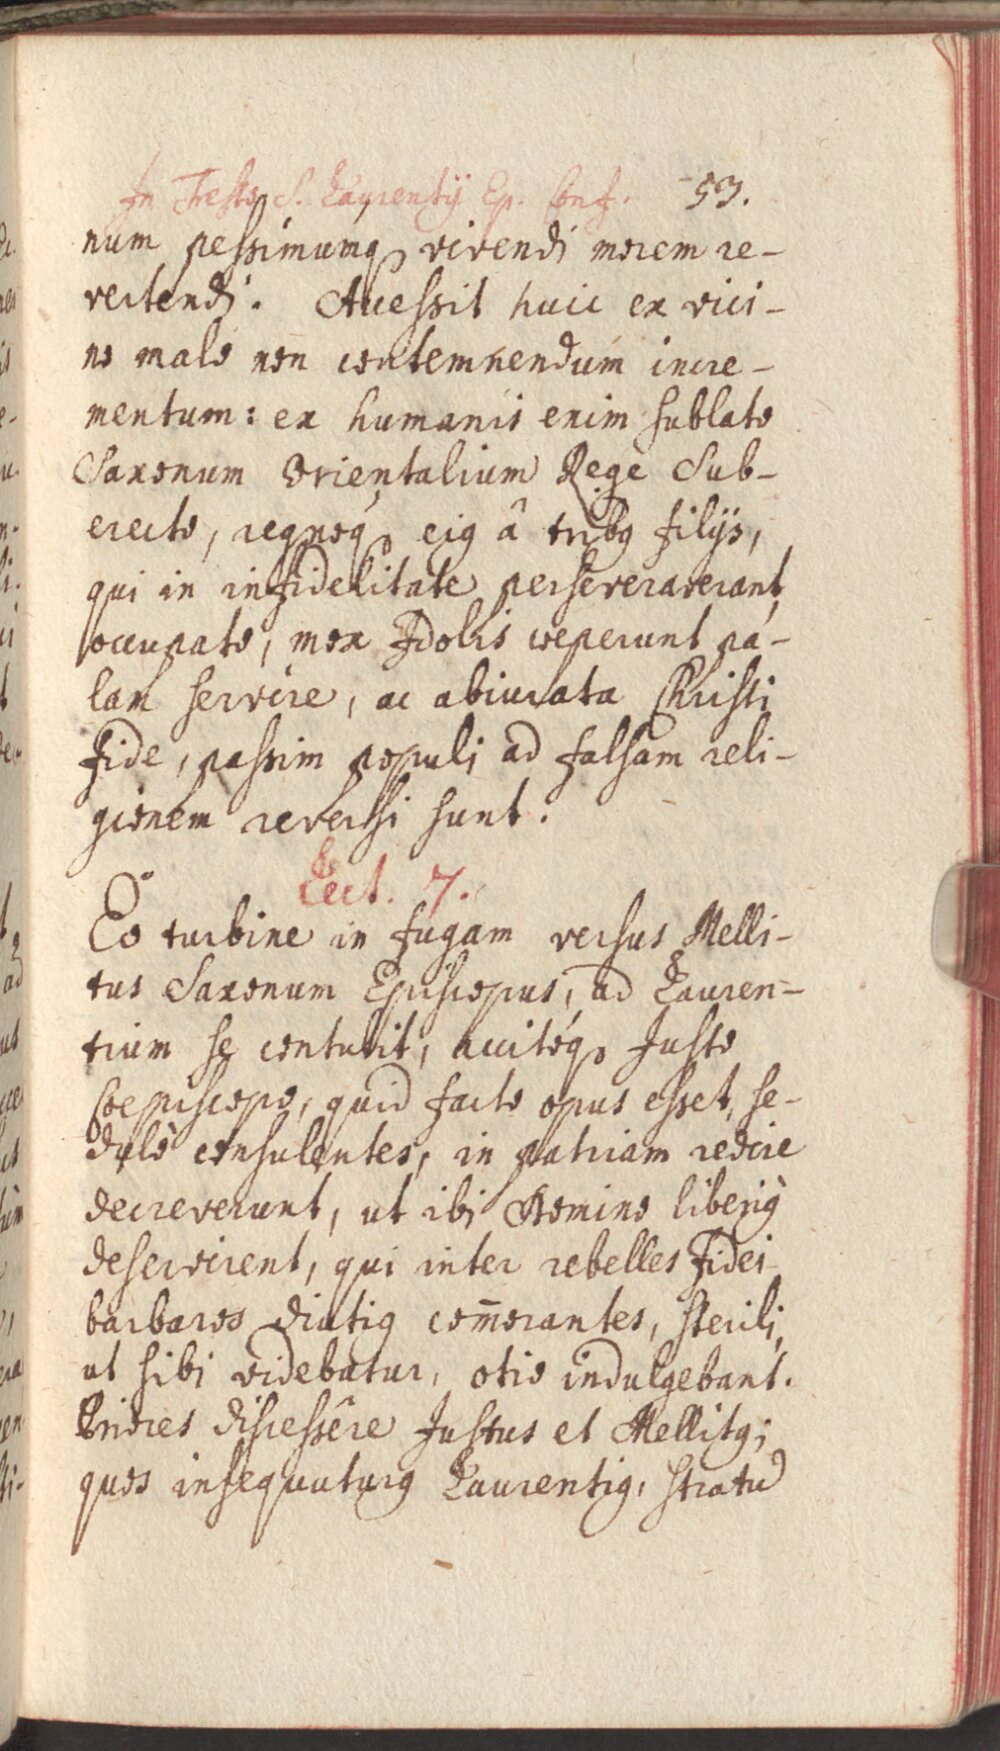 In Festo S. Laurentij Ep. Conf. 53.
num pessimumq₃ vivendi morem re-
vertendi. Accessit huic ex vici-
no malo non contemnendum incre-
mentum: ex humanis enim sublato
Saxonum Orientalium Rege Sub-
erecto, regnoq₃ eiꝰ â tribꝰ filijs,
qui in infidelitate perseveraverant
occupato, mox Idolis coeperunt pa-
lam servire, ac abiurata Christi
fide, passim populi ad falsam reli-
gionem reversi sunt.
Lect. 7.
Eo turbine in fugam versus Melli-
tus Saxonum Episcopus, ad Lauren-
tium se contulit, accitóq₃ Justo
Coepiscopo, quid facto opus esset, se-
dulò consulentes, in patriam redire
decreverunt, ut ibi Domino liberiꝰ
deservirent, qui inter rebelles Fidei
barbaros diutiꝰ com̄orantes, sterili,
ut sibi videbatur, otio indulgebant.
Priores discessêre Justus et Mellitꝰ;
quos insequuturꝰ Laurentiꝰ, stratū